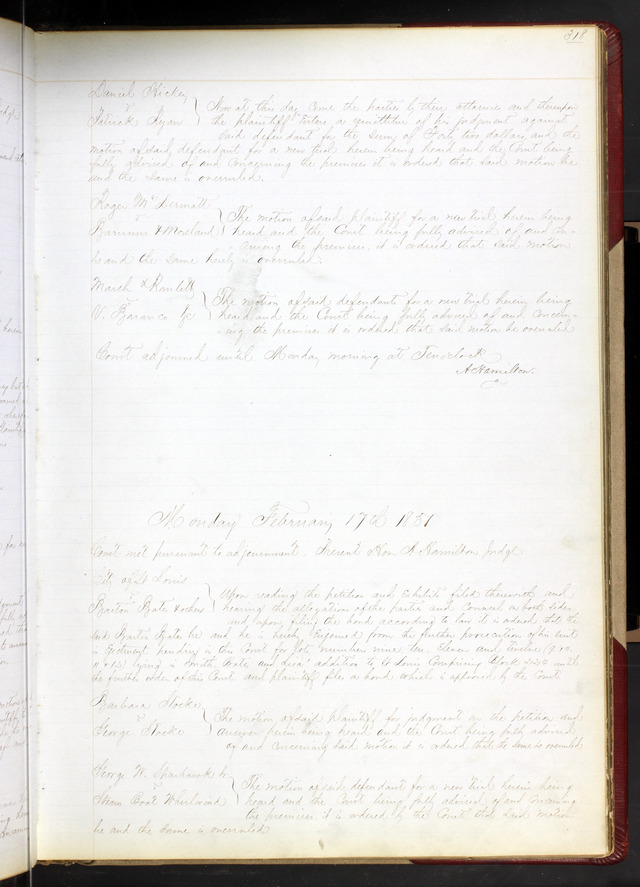 318
Daniel Hickey
vs
Patrick Ryan
Now at this day come the parties by their attorneys and thereupon
the plaintiff enters a remittitur of his judgment against
said defendant for the sum of Forty two dollars and the
motion of said defendant for a new trial herein being heard and the Court being
fully advised of and concerning the premises it is ordered that said motion be
and the same is overruled.
Roger McDermott
vs
& Moreland
The motion of said plaintiff for a new trial herein being
heard and the Court being fully advised of and con-
cerning the premises, it is ordered that said motion
be and the same hereby is overruled.
March & Bartlett
vs
V.
The motion of said defendant for a new trial herein being
heard and the Court being fully advised of and concern-
ing the premises it is ordered that said motion be overruled
Court adjourned until Monday morning at Ten oclock
A Hamilton.
Monday February 17th 1851
Court met pursuant to adjournment. Present Hon A Hamilton Judge
City of St Louis
vs
Barton Bate & others
Upon reading the petition and Exhibits filed therewith and
hearing the allegation of the parties and Counsel on both sides
and upon filing the bond according to law it is ordered that the
said Barton Bate be and he is hereby Enjoined from the further prosecution of his suit
in Ejectment pending in this Court for lots number nine ten Eleven and twelve (9.10.
11 & 12) lying in Smith Bate and addition to St Louis Comprising Block until
the further order of this Court and plaintiff files a bond which is approved by the Court
Barbara Stocke
vs
George Stocke
The motion of said plaintiff for judgment on the petition and
answer herein being heard and the Court being fully advised
of and concerning said motion it is ordered that the same is overruled
George W. Sparhawk &c
vs
Steam Boat Whirlwind
The motion of said defendant for a new trial herein being
heard and the Court being fully advised of and concerning
the premises it is ordered by the Court that said motion
be and the same is overruled